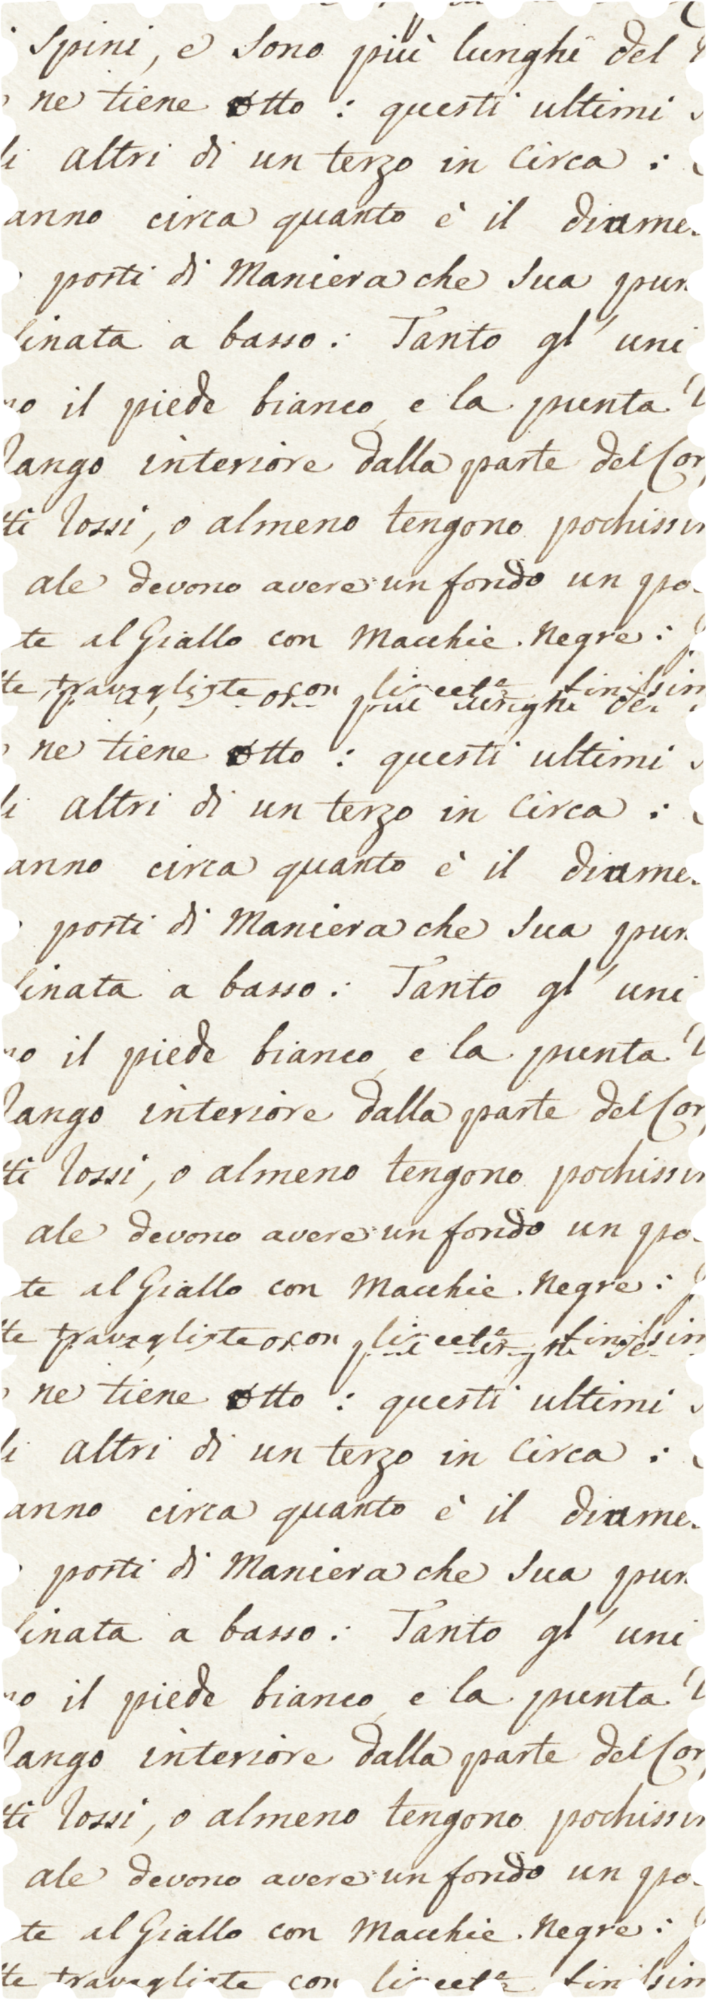 spini, e sono più lunghi del
ne tiene otto : questi ultimi
li altri di un terzo in circa :
anno circa quanto è il diame.
posti di Maniera che sua pun
linata a basso : Tanto gl' uni
no il piede bianco e la punta
lango interiore dalla parte del Cor
tti rossi, o almeno tengono pochissim
ale devono avere un fondo un po.
te al Giallo con Macchie Negre :
più lunghi del
ne tiene otto : questi ultimi
li altri di un terzo in circa :
anno circa quanto è il diame.
posti di Maniera che sua pun
linata a basso : Tanto gl' uni
no il piede bianco e la punta
lango interiore dalla parte del Cor
tti rossi, o almeno tengono pochissim
ale devono avere un fondo un po.
te al Giallo con Macchie Negre :
con
ne tiene otto : questi ultimi
li altri di un terzo in circa :
anno circa quanto è il diame.
posti di Maniera che sua pun
linata a basso : Tanto gl' uni
no il piede bianco e la punta
lango interiore dalla parte del Cor
tti rossi, o almeno tengono pochissim
ale devono avere un fondo un po.
te al Giallo con Macchie Negre :
te travagliate con